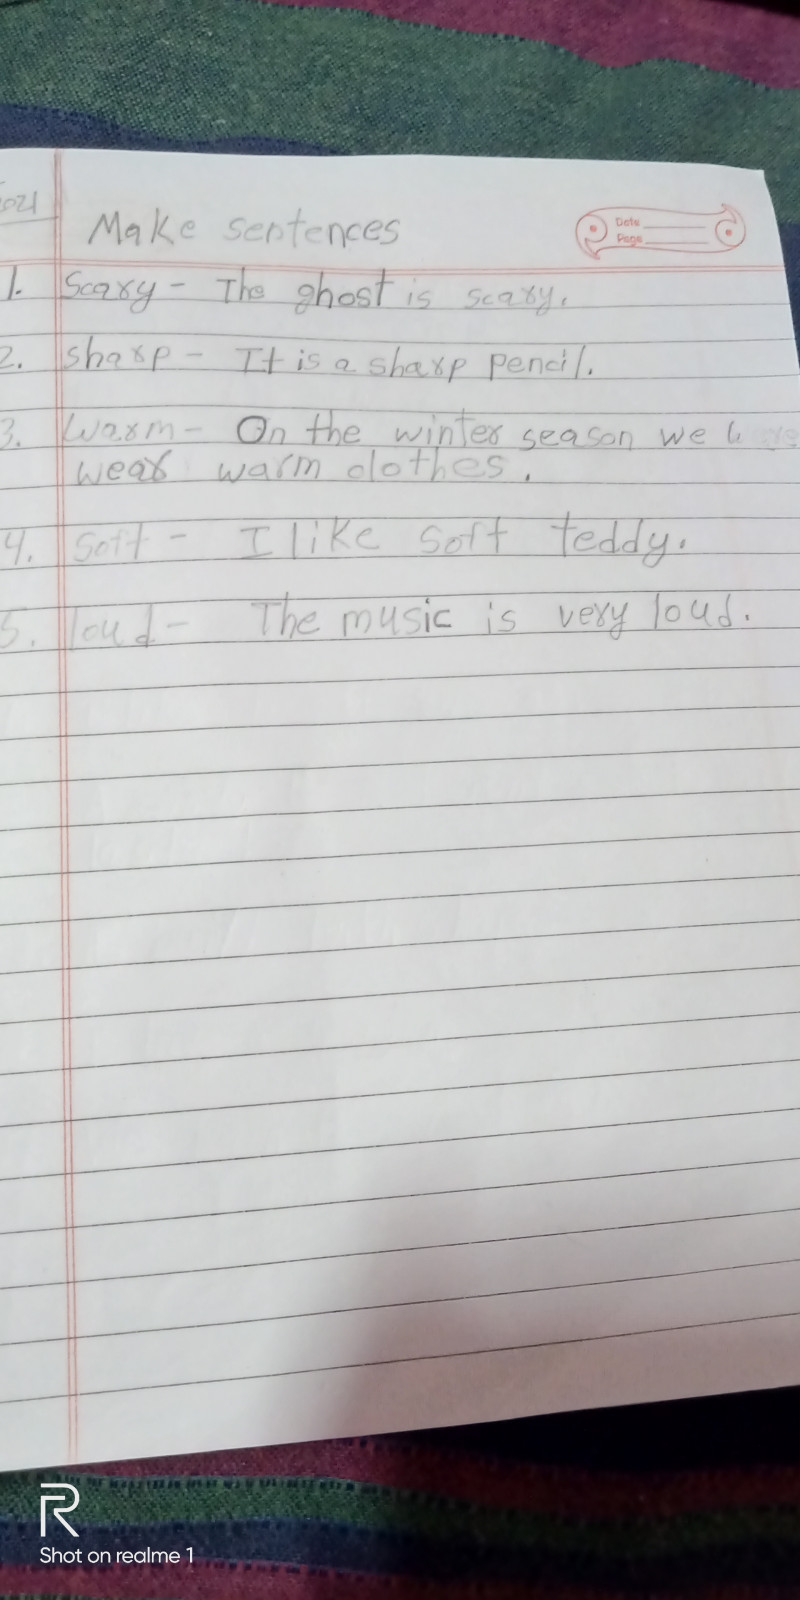 2021
Make sentences
Date
Page
1. Scary - The ghost is scary.
2. sharp - It is a sharp pencil.
3. Warm - On the winter season we
wear warm clothes.
4. Soft - I like soft teddy.
5. loud - The music is very loud.
R
Shot on realme 1